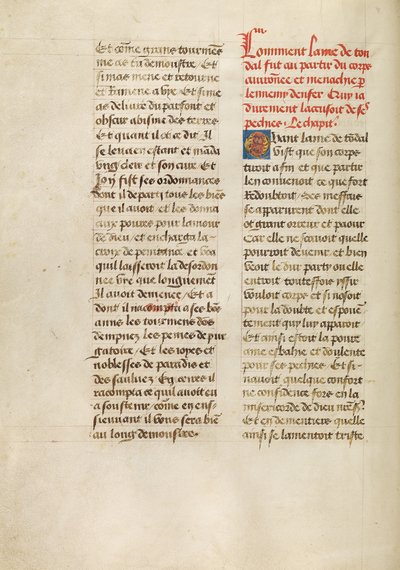 Et co͞me grans tourmens
me as tu demonstre. Et
si mas mene et retourne
et Ramene a vye. Et si me
as deliure du parfont et
obscur abisme des terres.
Et quant il ot ce dit. Il
se leua en estant et māda
vng clerc et son cure. Et
Lors fist ses ordonnances
dont il departi tous les biēs
que il auoit et les donna
aux poures pour lamour
de dieu. et encharga la
croix de penitance et voa
quil laisseroit la desordon
nee vie que longuement
Il auoit demenee. Et a
dont il racompta a ses bōs
amis les tourmens des
dempnez les peines de pur
gatoire. Et les ioyes et
noblesses de paradis et
des sauluez Et apres il
racompta ce quil auoit eu
a soustenir. co͞me en ens
sieuuant il vous sera biē
au long demonstre.
iiii
Comment lame de ton
dal fut au partir du corps
auironnee et menachee ꝑ
lennemy denfer. Et uy la
durement laccusoit de ses
pechies. Le chapit͛.
Quant lame de tōdal
vist que son corps
tiroit a fin et que partir
len conuenoit ce que fort
Redoubtoit. Ses meffais
se apparurent dont elle
ot grant orreur et paour
Car elle ne scauoit quelle
pourroit deuenir. et bien
veoit le dur party ou elle
entroit touteffois yssir
vouloit du corps et si nosoit
pour la doubte et espouē
tement quy luy apparoit
Et ainsi estoit la poure
ame esbahie et doulente
pour ses pechies. Et si
nauoit quelque confort
ne confidence fors en la
misericorde de dieu n͞r͞e s͛.
Et endementiers quelle
ainsi se lamentoit triste